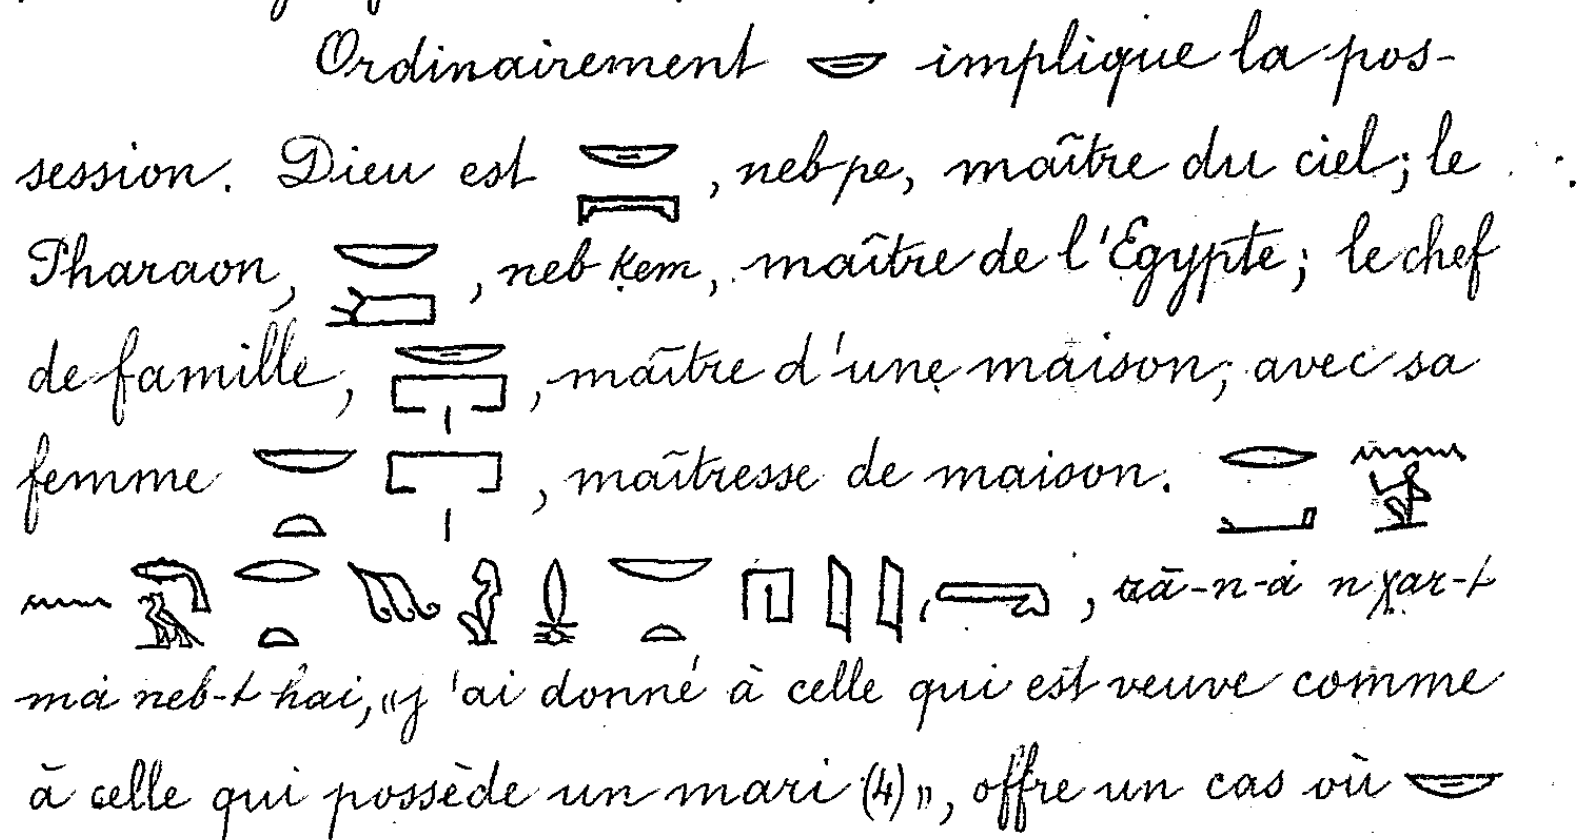 Ordinairement 𓎟 implique la pos-
session. Dieu est 𓎟𓇯, neb-pe, maître du ciel; le
Pharaon, 𓎟𓆎, neb kem, maître de l'Egypte; le chef
de famille, 𓎟𓉐𓏤, maître d'une maison; avec sa
femme 𓎟𓏏𓉐𓏤, maîtresse de maison. 𓂋𓂝 𓈖𓀀
𓈖 𓂋𓏏 𓎟𓏏𓉔𓇋𓇋, rā-n-à n χar-t
mà neb-t hai, «j'ai donné à celle qui est veuve comme
à celle qui possède un mari (4)», offre un cas où 𓎟